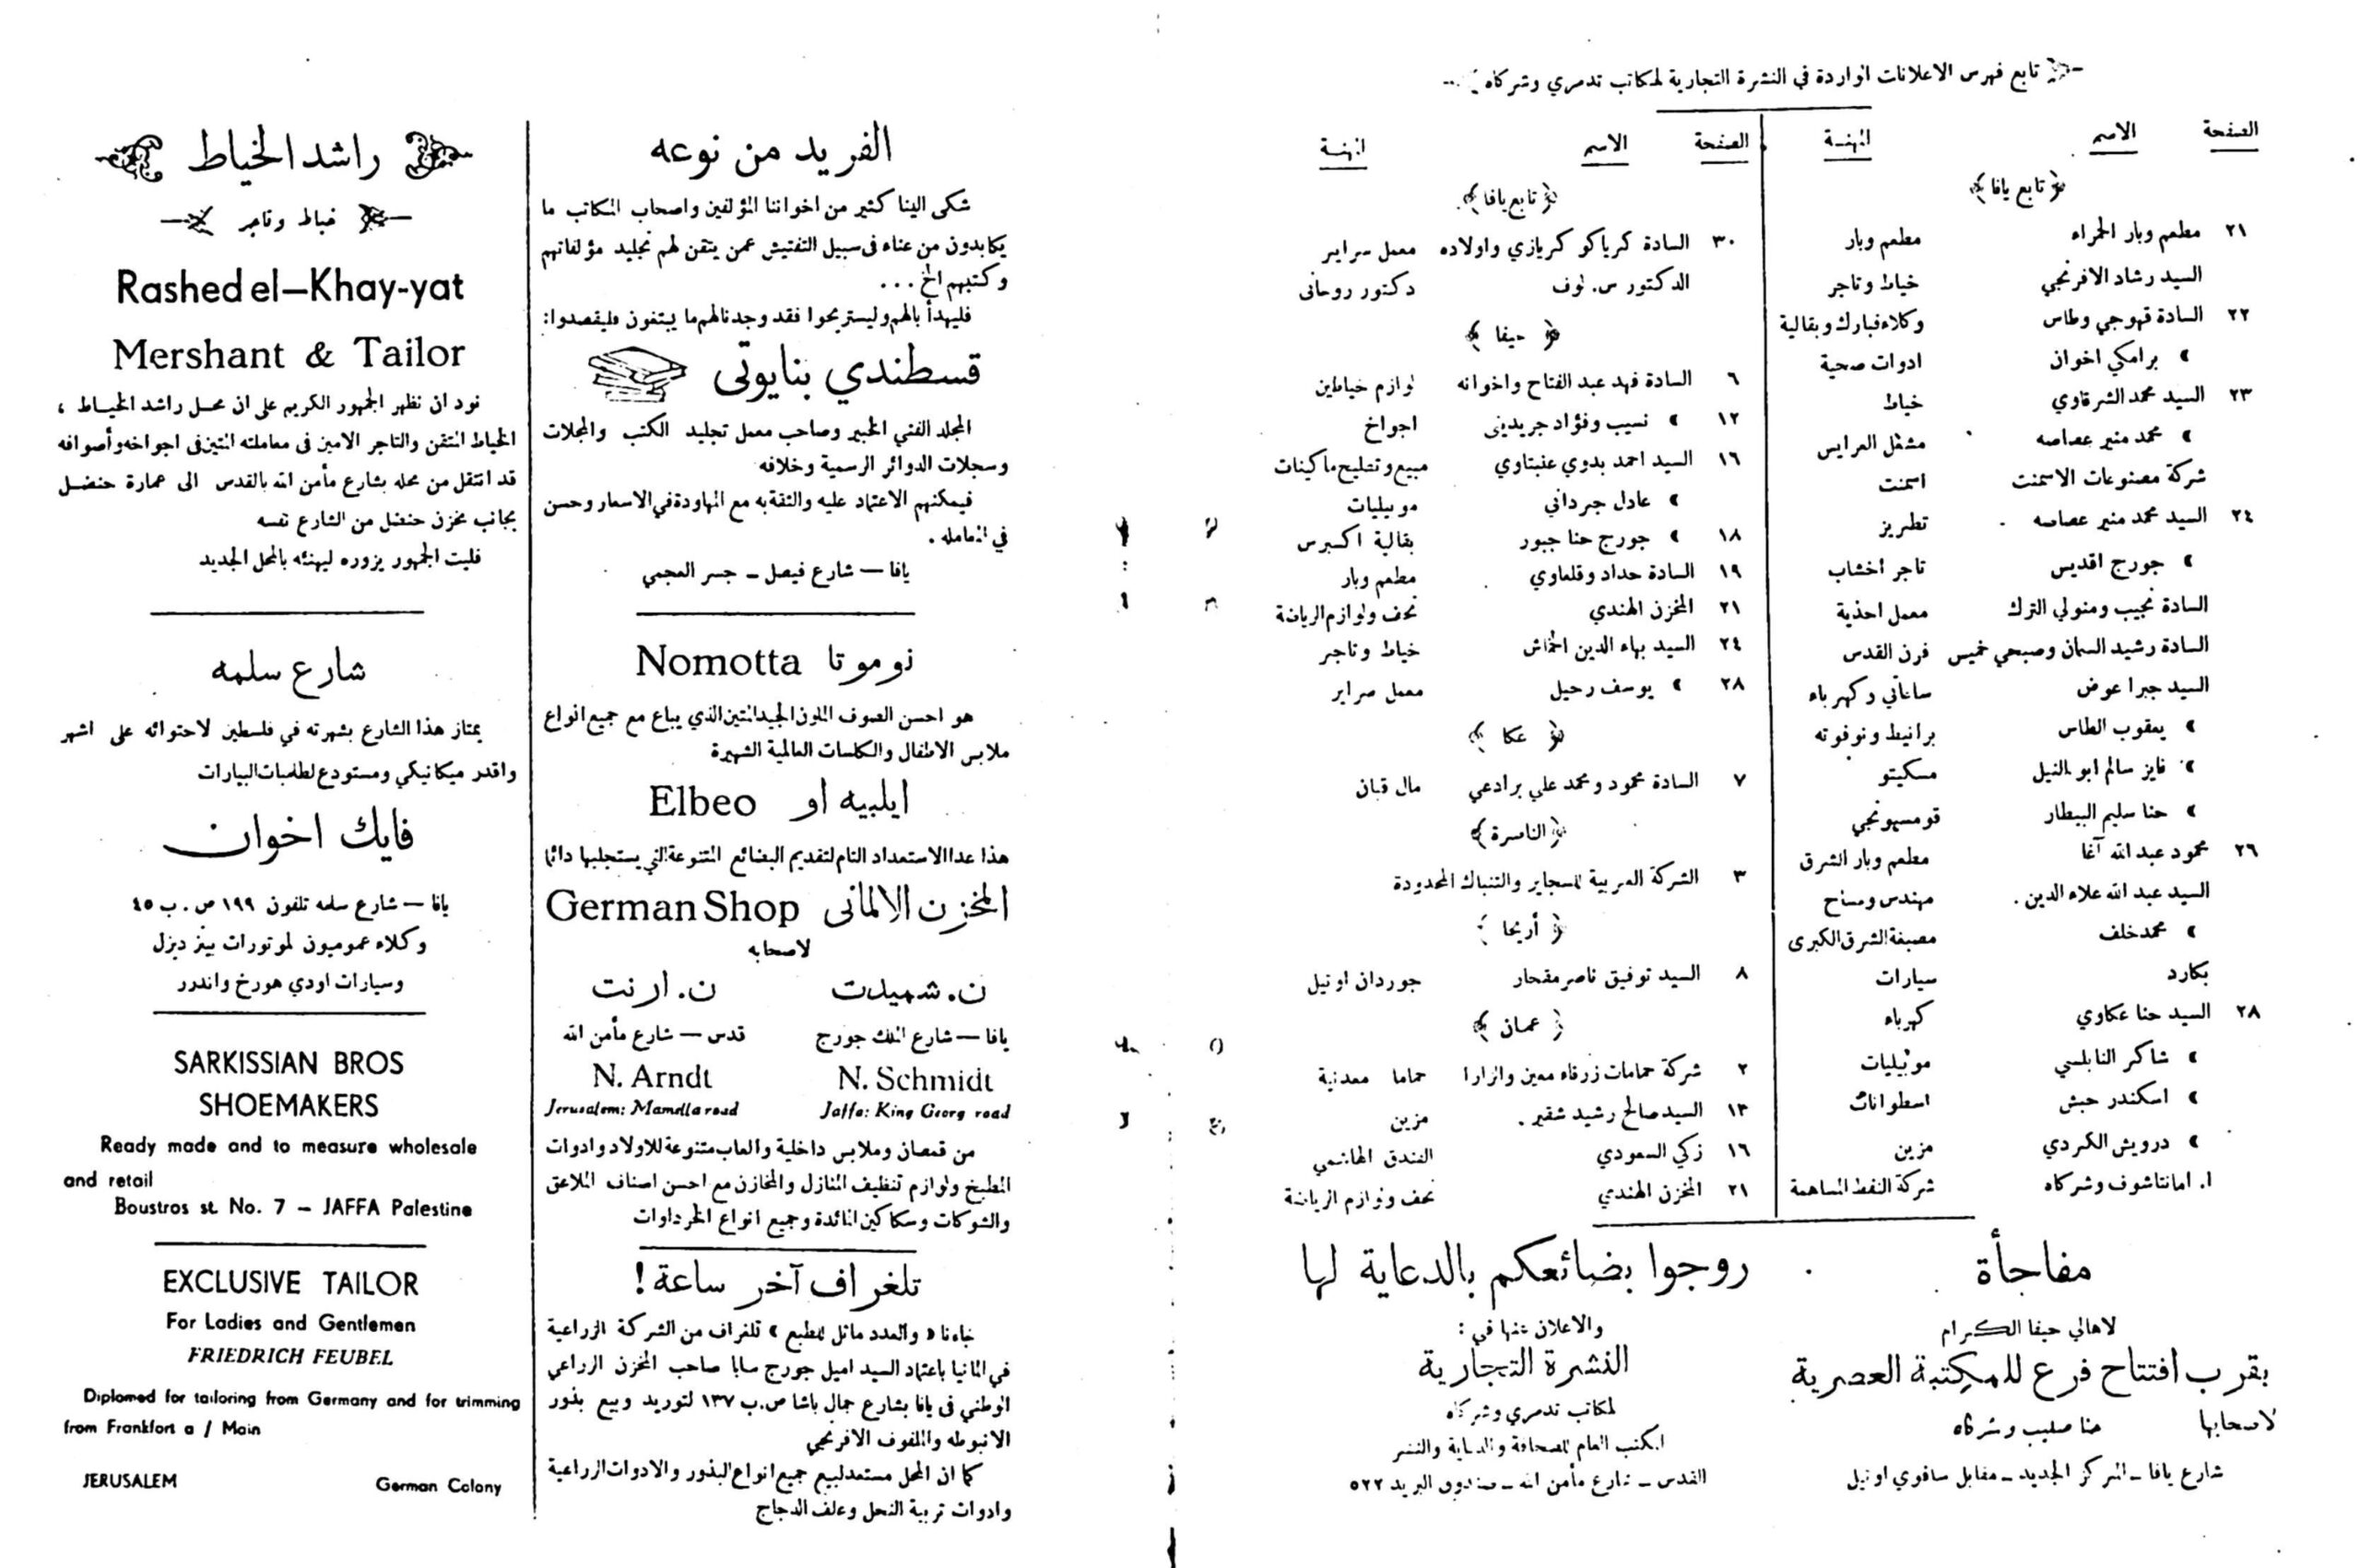 تابع فهرس الاعلانات الواردة في النشرة التجارية لمكاتب تدمري وشركاه
الصفحة الاسم المهنـة
﴿ تابع يافا ﴾
٢١ مطعم وبار الحمراء مطعم وبار
السيد رشاد الافرنجي خياط وتاجر
٢٢ السادة قهوجي وطاس وكلاء فبارك وبقالية
» برامكي اخوان ادوات صحية
٢٣ السيد محمد الشرقاوي خياط
» محمد منير عصاصه مشغل العرايس
شركة مصنوعات الاسمنت اسمنت
٢٤ السيد محمد منير عصاصه تطريز
» جورج اقديس تاجر اخشاب
السادة نجيب ومتولي الترك معمل احذية
السادة رشيد السمان وصبحي خميس فرن القدس
السيد جبرا عوض ساعاتي وكهرباء
» يعقوب الطاس برانيط ونوفوته
» فايز سالم ابو النيل مسكيتو
» حنا سليم البيطار قومسيونجي
٢٦ محمود عبد الله آغا مطعم وبار الشرق
السيد عبد الله علاء الدين . مهندس ومساح
» محمد خلف مصبغة الشرق الكبرى
بكارد سيارات
٢٨ السيد حنا عكاوي كهرباء
» شاكر النابلسي موبيليات
» اسكندر حبش اسطوانات
» درويش الكردي مزين
ا. امانتاشوف وشركاه شركة النفط المساهمة
الصفحة الاسم المهنـة
﴿ تابع يافا ﴾
٣٠ السادة كرياكو كريازي واولاده معمل سراير
الدكتور س. لوف دكتور روحانى
﴿ حيفا ﴾
٦ السادة فهد عبد الفتاح واخوانه لوازم خياطين
١٢ » نسيب وفؤاد جريدينى اجواخ
١٦ السيد احمد بدوي عنبتاوي مبيع وتصليح ماكينات
» عادل جرداني موبيليات
١٨ » جورج حنا جبور بقالية اكسبرس
١٩ السادة حداد وقلعاوي مطعم وبار
٢١ المخزن الهندي تحف ولوازم الرياضة
٢٤ السيد بهاء الدين الخماش خياط وتاجر
٢٨ » يوسف رحيل معمل صراير
﴿ عكا ﴾
٧ السادة محمود ومحمد علي برادعي مال قبان
﴿ الناصرة ﴾
٣ الشركة العربية للسجاير والتنباك المحدودة
﴿ أريحا ﴾
٨ السيد توفيق ناصر مقحار جوردان اوتيل
﴿ عمان ﴾
٢ شركة حمامات زرقاء معين والزارا حماما معدنية
١٣ السيد صالح رشيد شقير . مزين
١٦ زكي السعودي الفندق الهاشمي
٢١ المخزن الهندي تحف ولوازم الرياضة
مفاجأة
لاهالي حيفا الكرام
بقرب افتتاح فرع للمكتبة العصرية
لاصحابها حنا صليب وشركاه
شارع يافا ــ المركز الجديد ــ مقابل سافوي اوتيل
روجوا بضائعكم بالدعاية لها
والاعلان عنها في :
النشرة التجارية
لمكاتب تدمري وشركاه
المكتب العام للصحافة والدعاية والنشر
القدس ــ شارع مأمن الله ــ صندوق البريد ٥٢٢
الفريد من نوعه
شكى الينا كثير من اخواننا المؤلفين واصحاب المكاتب ما
يكابدون من عناء فى سبيل التفتيش عمن يتقن لهم تجليد مؤلفاتهم
وكتبهم الخ ...
فليهدأ بالهم وليستريحوا فقد وجدنا لهم ما يبتغون فليقصدوا:
قسطندي بنايوتى
المجلد الفني الخبير وصاحب معمل تجليد الكتب والمجلات
وسجلات الدوائر الرسمية وخلافه
فيمكنهم الاعتماد عليه والثقة به مع المهاودة في الاسعار وحسن
في المعامله .
يافا — شارع فيصل ــ جسر العجمي
نوموتا Nomotta
هو احسن الصوف الملون الجيد المتين الذي يباع مع جميع انواع
ملابس الاطفال والكلسات العالمية الشهيرة
ايلبيه او Elbeo
هذا عدا الاستعداد التام لتقديم البضائع المتنوعة التي يستجلبها دائما
المخزن الالمانى German Shop
لاصحابه
ن. شميدت ن. ارنت
يافا — شارع الملك جورج قدس — شارع مأمن الله
N. Schmidt N. Arndt
Jaffa: King Georg road Jerusalem: Mamella road
من قمصان وملابس داخلية والعاب متنوعة للاولاد وادوات
المطبخ ولوازم تنظيف المنازل والمخازن مع احسن اصناف الملاعق
والشوكات وسكاكين المائدة وجميع انواع الخرداوات
تلغراف آخر ساعة !
جاءنا « والعدد ماثل للطبع » تلغراف من الشركة الزراعية
في المانيا باعتماد السيد اميل جورج سابا صاحب المخزن الزراعي
الوطني فى يافا بشارع جمال باشا ص.ب ١٣٧ لتوريد وبيع بذور
الانبوطه والملفوف الافرنجي
كما ان المحل مستعد لبيع جميع انواع البذور والادوات الزراعية
وادوات تربية النحل وعلف الدجاج
راشد الخياط
خياط وتاجر
Rashed el—Khay-yat
Mershant & Tailor
نود ان نظهر الجمهور الكريم على ان محـل راشد الخيـاط ،
الخياط المتقن والتاجر الامين فى معاملته المتين فى اجواخه وأصوافه
قد انتقل من محله بشارع مأمن الله بالقدس الى عمارة حنضـل
بجانب مخزن حنضل من الشارع نفسه
فليت الجمهور يزوره ليهنئه بالمحل الجديد
شارع سلمه
يمتاز هذا الشارع بشهرته في فلسطين لاحتوائه على اشهر
واقدر ميكانيكي ومستودع لطلمبات البيارات
فايك اخوان
يافا — شارع سلمه تلفون ١٩٩ ص . ب ٤٥
وكلاء عموميون لموتورات بينز ديزل
وسيارات اودي هورخ واندرر
SARKISSIAN BROS
SHOEMAKERS
Ready made and to measure wholesale
and retail
Boustros st. No. 7 – JAFFA Palestine
EXCLUSIVE TAILOR
For Ladies and Gentlemen
FRIEDRICH FEUBEL
Diplomed for tailoring from Germany and for trimming
from Frankfort a / Main
JERUSALEM German Colony